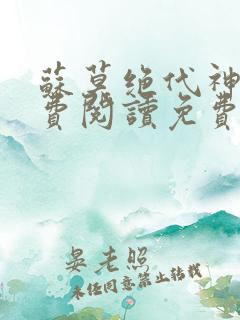 蘇莫绝代神
费閱讀免費
晏老照
未经同意禁止转载